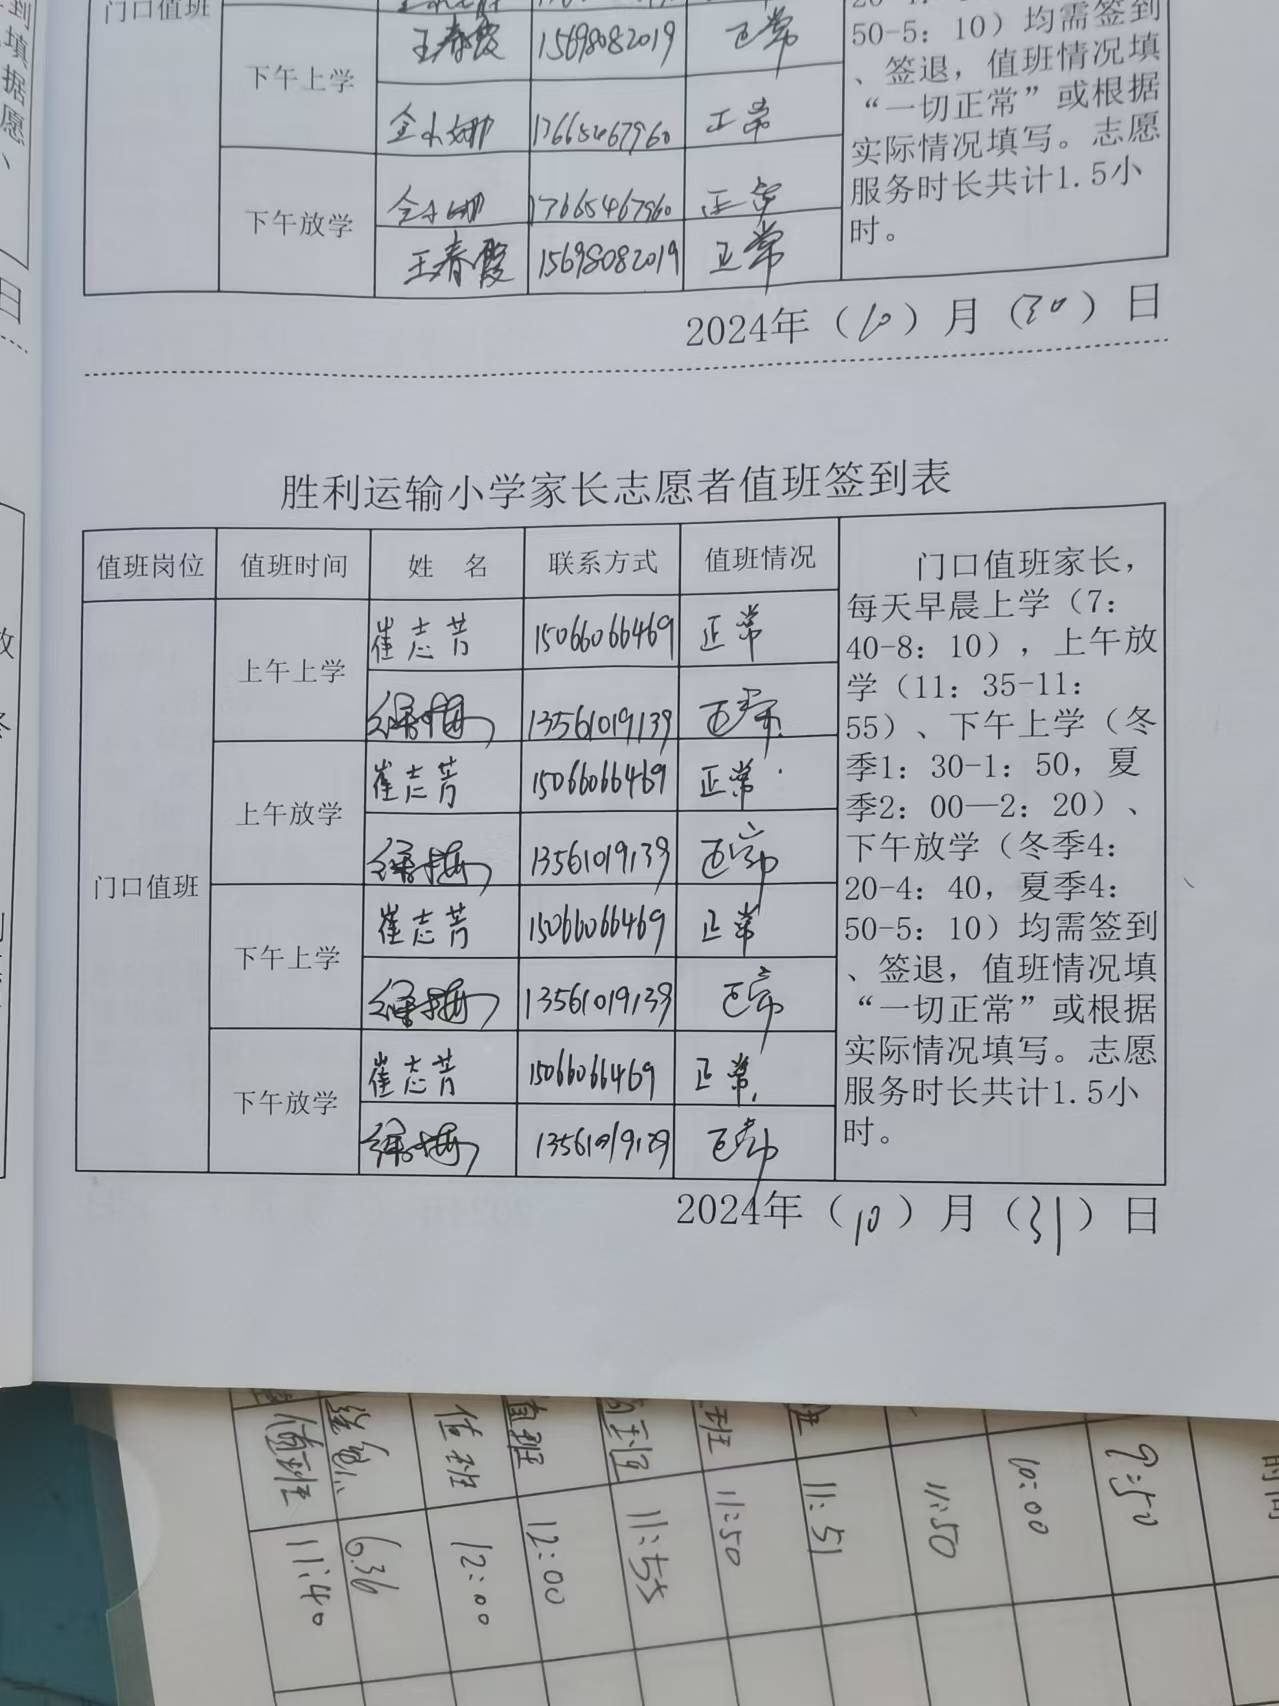 门口值班
下午上学 王春霞 15698082019 正常
17665467960 正常
下午放学 17665467960 正常
王春霞 15698082019 正常
50-5：10）均需签到
、签退，值班情况填
“一切正常”或根据
实际情况填写。志愿
服务时长共计1.5小
时。
2024年（10）月（30）日
胜利运输小学家长志愿者值班签到表
值班岗位 值班时间 姓 名 联系方式 值班情况
门口值班
上午上学 崔志芳 15066066469 正常
徐梅 13561019139 正常
上午放学 崔志芳 15066066469 正常
徐梅 13561019139 正常
下午上学 崔志芳 15066066469 正常
徐梅 13561019139 正常
下午放学 崔志芳 15066066469 正常
徐梅 正常
门口值班家长，
每天早晨上学（7：
40-8：10），上午放
学（11：35-11：
55）、下午上学（冬
季1：30-1：50，夏
季2：00—2：20）、
下午放学（冬季4：
20-4：40，夏季4：
50-5：10）均需签到
、签退，值班情况填
“一切正常”或根据
实际情况填写。志愿
服务时长共计1.5小
时。
2024年（10）月（31）日
值班 11:40
6:36
值班 12:00
值班 12:00
11:55
班 11:50
11:51
11:50
10:00
9:50
时间